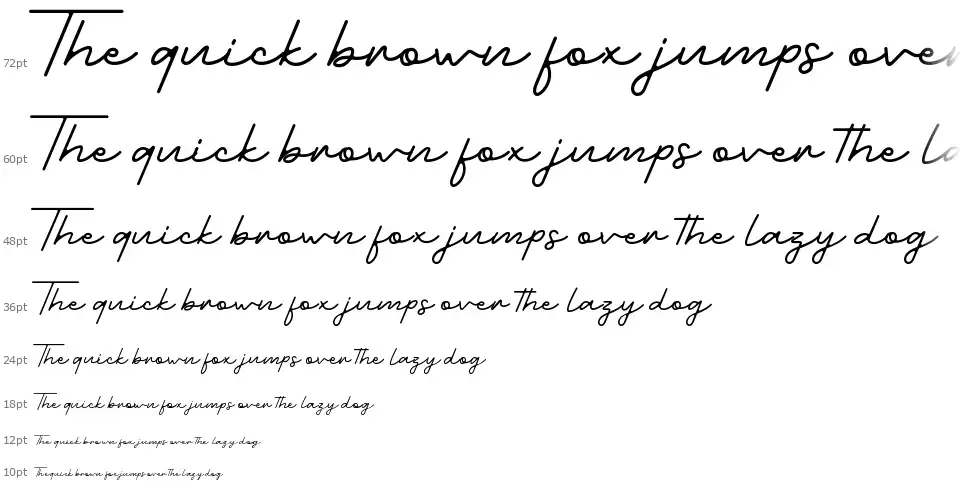 72pt The quick brown fox jumps over
60pt The quick brown fox jumps over the la
48pt The quick brown fox jumps over the lazy dog
36pt The quick brown fox jumps over the lazy dog
24pt The quick brown fox jumps over the lazy dog
18pt The quick brown fox jumps over the lazy dog
12pt The quick brown fox jumps over the lazy dog
10pt The quick brown fox jumps over the lazy dog